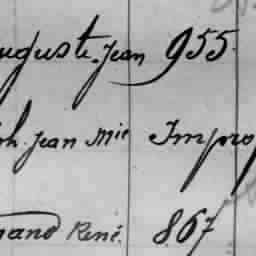 uguste Jean 955
ph. Jean Mie Impro
mand René. 867